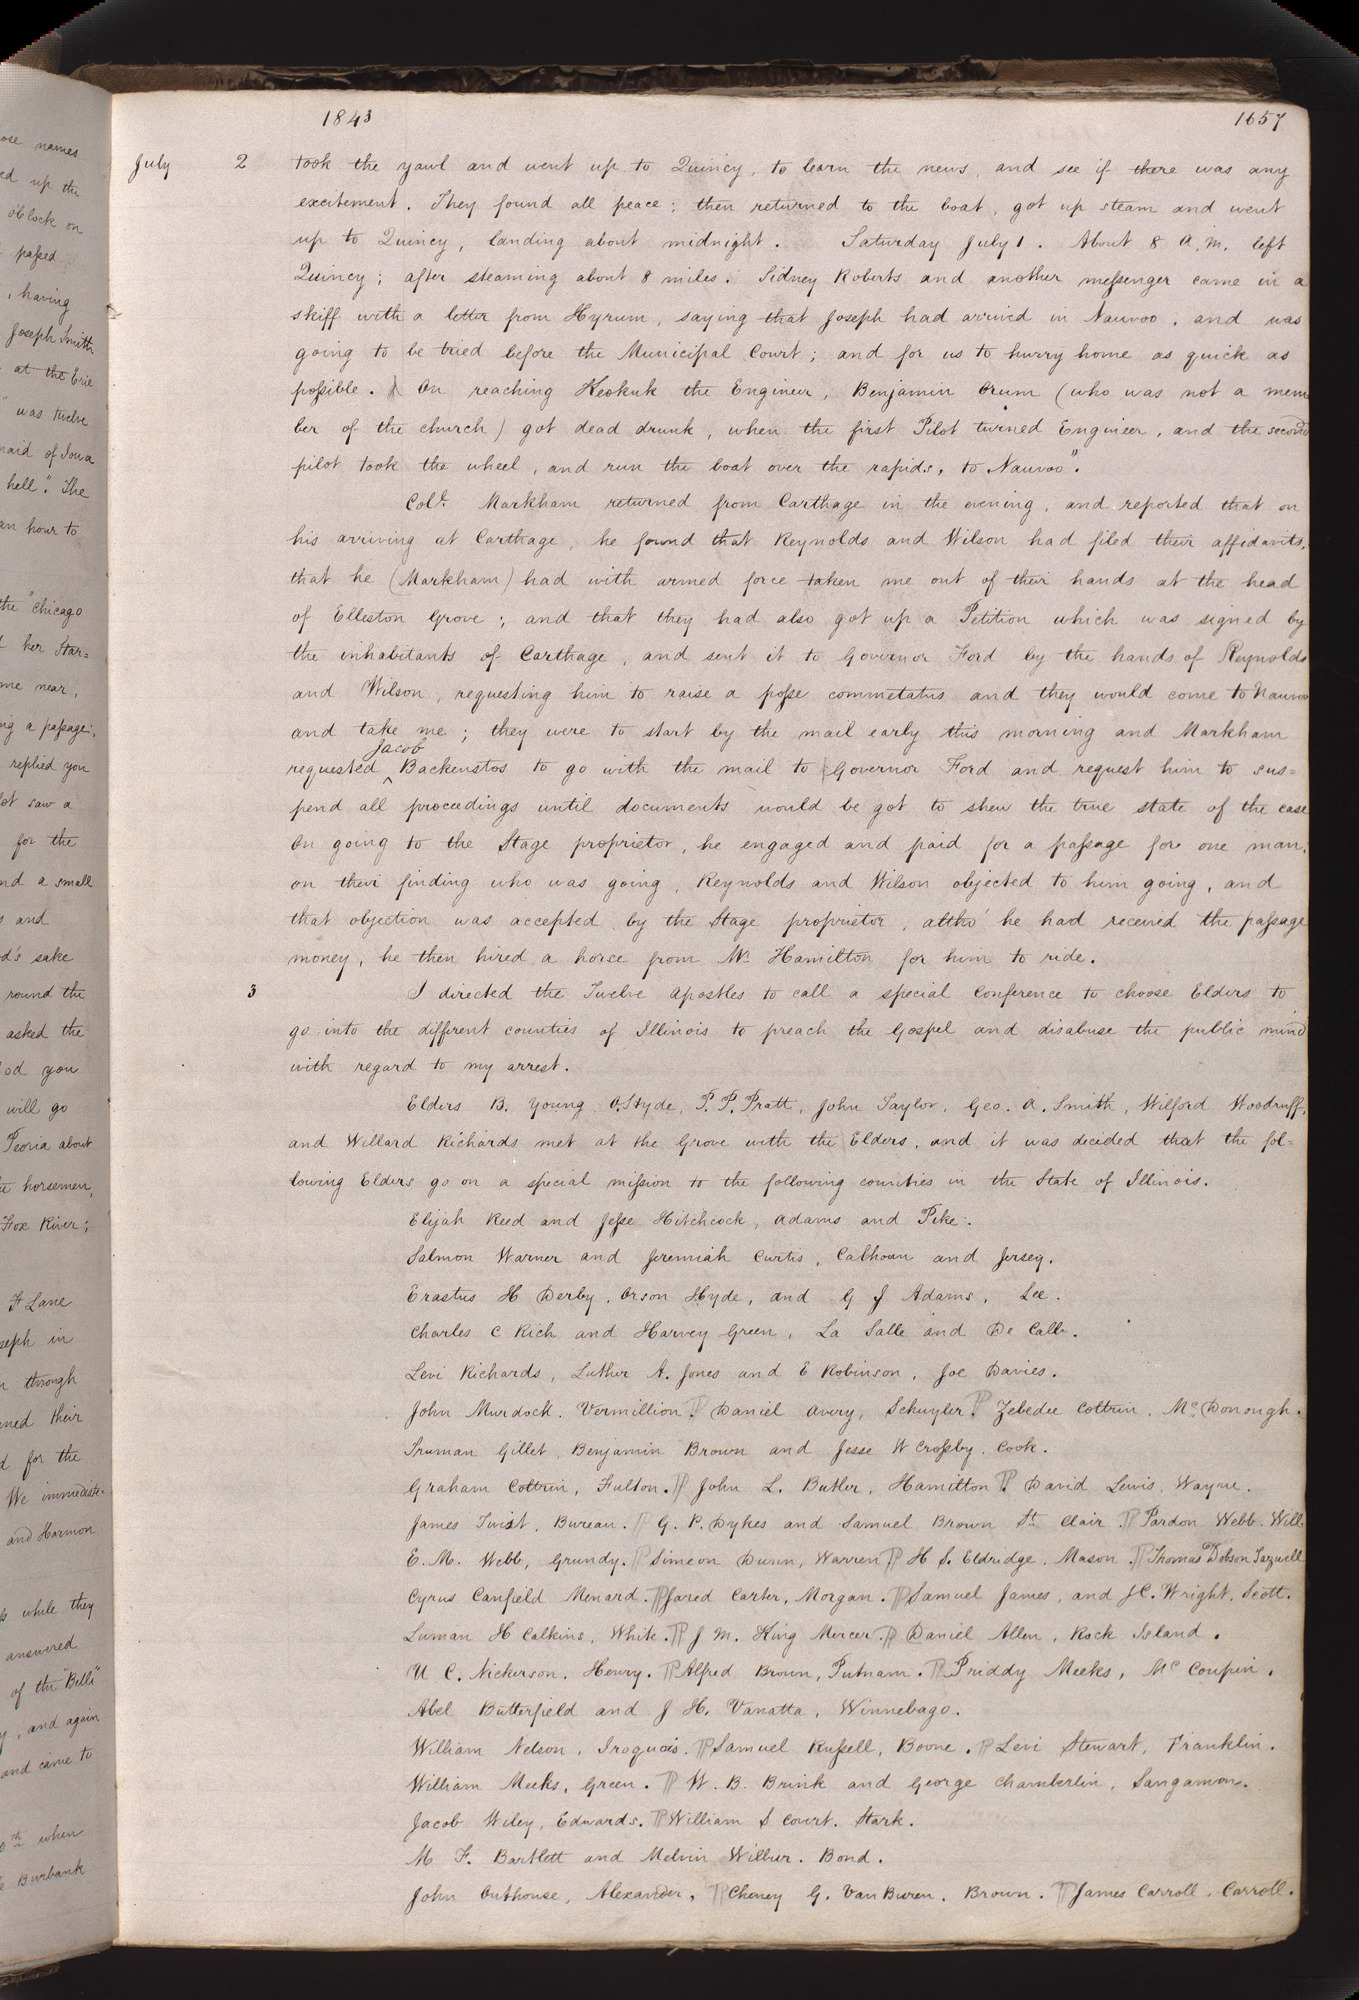 1843
1657
July 2 took the yawl and went up to Quincy, to learn the news, and see if there was any
excitement. They found all peace; then returned to the boat, got up steam and went
up to Quincy, landing about midnight. Saturday July 1. About 8 A.M. left
Quincy; after steaming about 8 miles. Sidney Roberts and another messenger came in a
skiff with a letter from Hyrum, saying that Joseph had arrived in Nauvoo, and was
going to be tried before the Municipal Court; and for us to hurry home as quick as
possible. On reaching Keokuk the Engineer, Benjamin Orum (who was not a mem
ber of the church) got dead drunk, when the first Pilot turned Engineer, and the second
pilot took the wheel, and run the boat over the rapids, to Nauvoo".
Col. Markham returned from Carthage in the evening, and reported that on
his arriving at Carthage, he found that Reynolds and Wilson had filed their affidavits,
that he (Markham) had with armed force taken me out of their hands at the head
of Elleston Grove; and that they had also got up a Petition which was signed by
the inhabitants of Carthage, and sent it to Governor Ford by the hands of Reynolds
and Wilson, requesting him to raise a posse commetatus and they would come to Nauvoo
and take me; they were to start by the mail early this morning and Markham
requested Jacob Backenstos to go with the mail to Governor Ford and request him to sus=
pend all proceedings until documents would be got to shew the true state of the case
On going to the Stage proprietor, he engaged and paid for a passage for one man;
on their finding who was going, Reynolds and Wilson objected to him going, and
that objection was accepted by the Stage proprietor, altho' he had received the passage
money, he then hired a horce from Mr. Hamilton for him to ride.
3 I directed the Twelve Apostles to call a special Conference to choose Elders to
go into the different counties of Illinois to preach the Gospel and disabuse the public mind
with regard to my arrest.
Elders B. Young O. Hyde, P. P. Pratt, John Taylor, Geo. A. Smith, Wilford Woodruff,
and Willard Richards met at the Grove with the Elders, and it was decided that the fol=
lowing Elders go on a special mission to the following counties in the State of Illinois.
Elijah Reed and Jesse Hitchcock, Adams and Pike.
Salmon Warner and Jeremiah Curtis, Calhoun and Jersey.
Erastus H Derby, Orson Hyde, and G J Adams, Lee.
Charles C Rich and Harvey Green, La Salle and De Calb.
Levi Richards, Luther A. Jones and E Robinson, Joe Davies.
John Murdock. Vermillion. Daniel Avery, Schuyler. Zebedee Coltrin, Mc.Donough.
Truman Gillet, Benjamin Brown and Jesse W Crossby, Cook.
Graham Coltrin, Fulton. John L. Butler, Hamilton. David Lewis, Wayne.
James Twist, Bureau. G. P. Dykes and Samuel Brown St. Clair. Pardon Webb. Will.
E. M. Webb, Grundy. Simeon Dunn, Warren. H S. Eldridge, Mason. Thomas Dobson Tazwell
Cyrus Canfield Menard. Jared Carter, Morgan. Samuel James, and J C. Wright, Scott.
Luman H Calkins, White. J M. King Mercer. Daniel Allen, Rock Island.
U C. Nickerson, Henry. Alfred Brown, Putnam. Priddy Meeks, Mc Coupin.
Abel Butterfield and J H. Vanatta, Winnebago.
William Nelson, Iroquois. Samuel Russell, Boone. Levi Stewart, Franklin.
William Meeks, Green. W. B. Brink and George Chamberlin, Sangamon.
Jacob Wiley, Edwards. William S Covert. Stark.
M F. Bartlett and Melvin Wilbur. Bond.
John Outhouse, Alexander, Cheney G. Van Buren. Brown. James Carroll. Carroll.